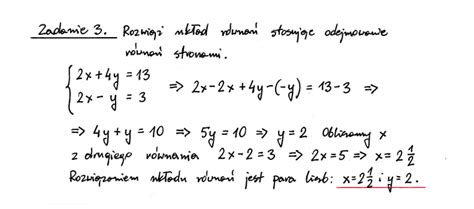 Zadanie 3. Rozwiąż układ równań stosując odejmowanie
równań stronami.
{2x+4y = 13
2x - y = 3 ⇒ 2x-2x+4y-(-y) = 13-3 ⇒
⇒ 4y+y = 10 ⇒ 5y = 10 ⇒ y = 2 Obliczamy x
z drugiego równania 2x-2 = 3 ⇒ 2x = 5 ⇒ x = 2 1/2
Rozwiązaniem układu równań jest para liczb: x = 2 1/2 i y = 2.